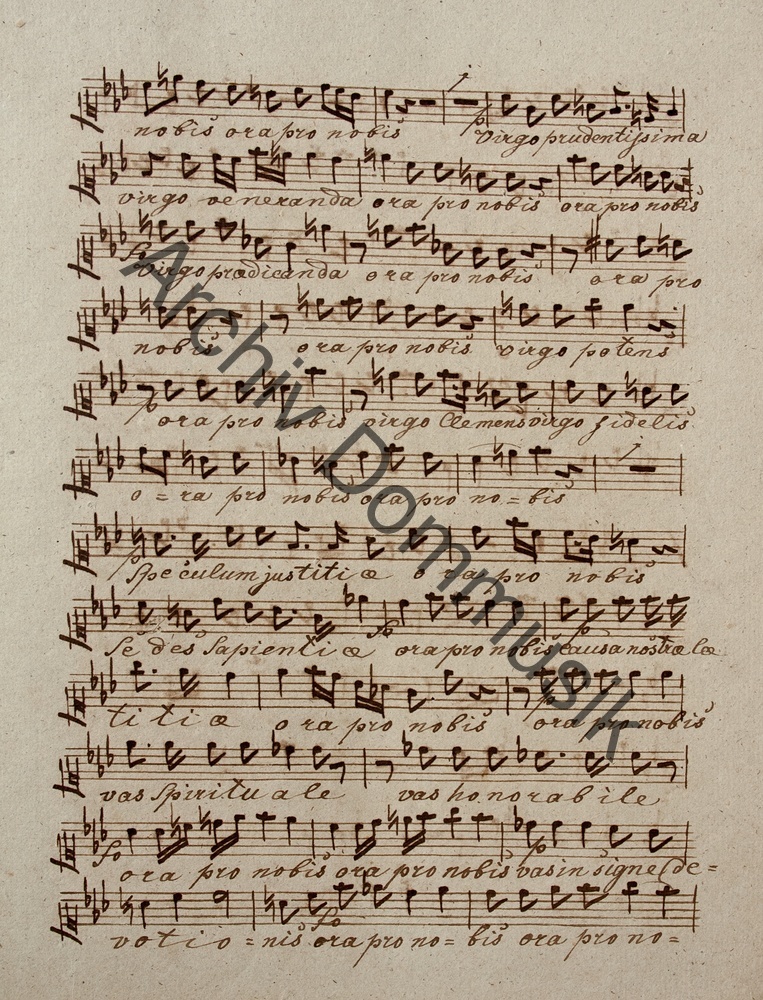 nobis ora pro nobis Virgo prudentissima
virgo veneranda ora pro nobis ora pro nobis
fo Virgo prædicanda ora pro nobis ora pro
nobis ora pro nobis virgo potens
p ora pro nobis virgo Clemens virgo fidelis
o = ra pro nobis ora pro no = bis
p Speculum justitiæ ora pro nobis
Sedes Sapientiæ fo ora pro nobis p causa nostræ læ
titiæ ora pro nobis p ora pro nobis
vas Spirituale vas honorabile
fo ora pro nobis ora pro nobis p vas insigne de=
votio = nis fo ora pro no= bis ora pro no=
Archiv Dommusik